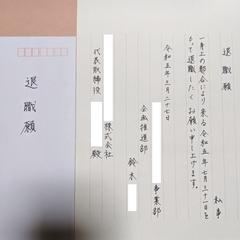 退職願
退職願
私事
一身上の都合により来る令和五年七月三十一日を
もって退職したくお願い申し上げます。
令和五年三月二十七日
事業部
企画推進部
鈴木
株式会社
代表取締役 殿